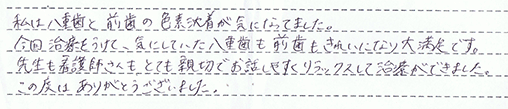 私は八重歯と前歯の色素沈着が気になってました。
今回治療をうけて、気にしていた八重歯も前歯もきれいになり大満足です。
先生も看護師さんもとても親切でお話しやすくリラックスして治療ができました。
この度はありがとうございました。